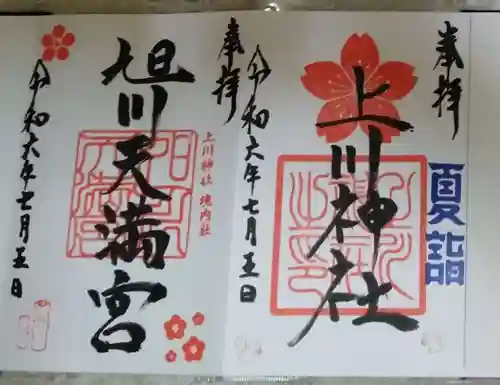 奉拝
夏詣
上川神社
令和六年七月五日
奉拝
上川神社 境内社
旭川天満宮
令和六年七月五日